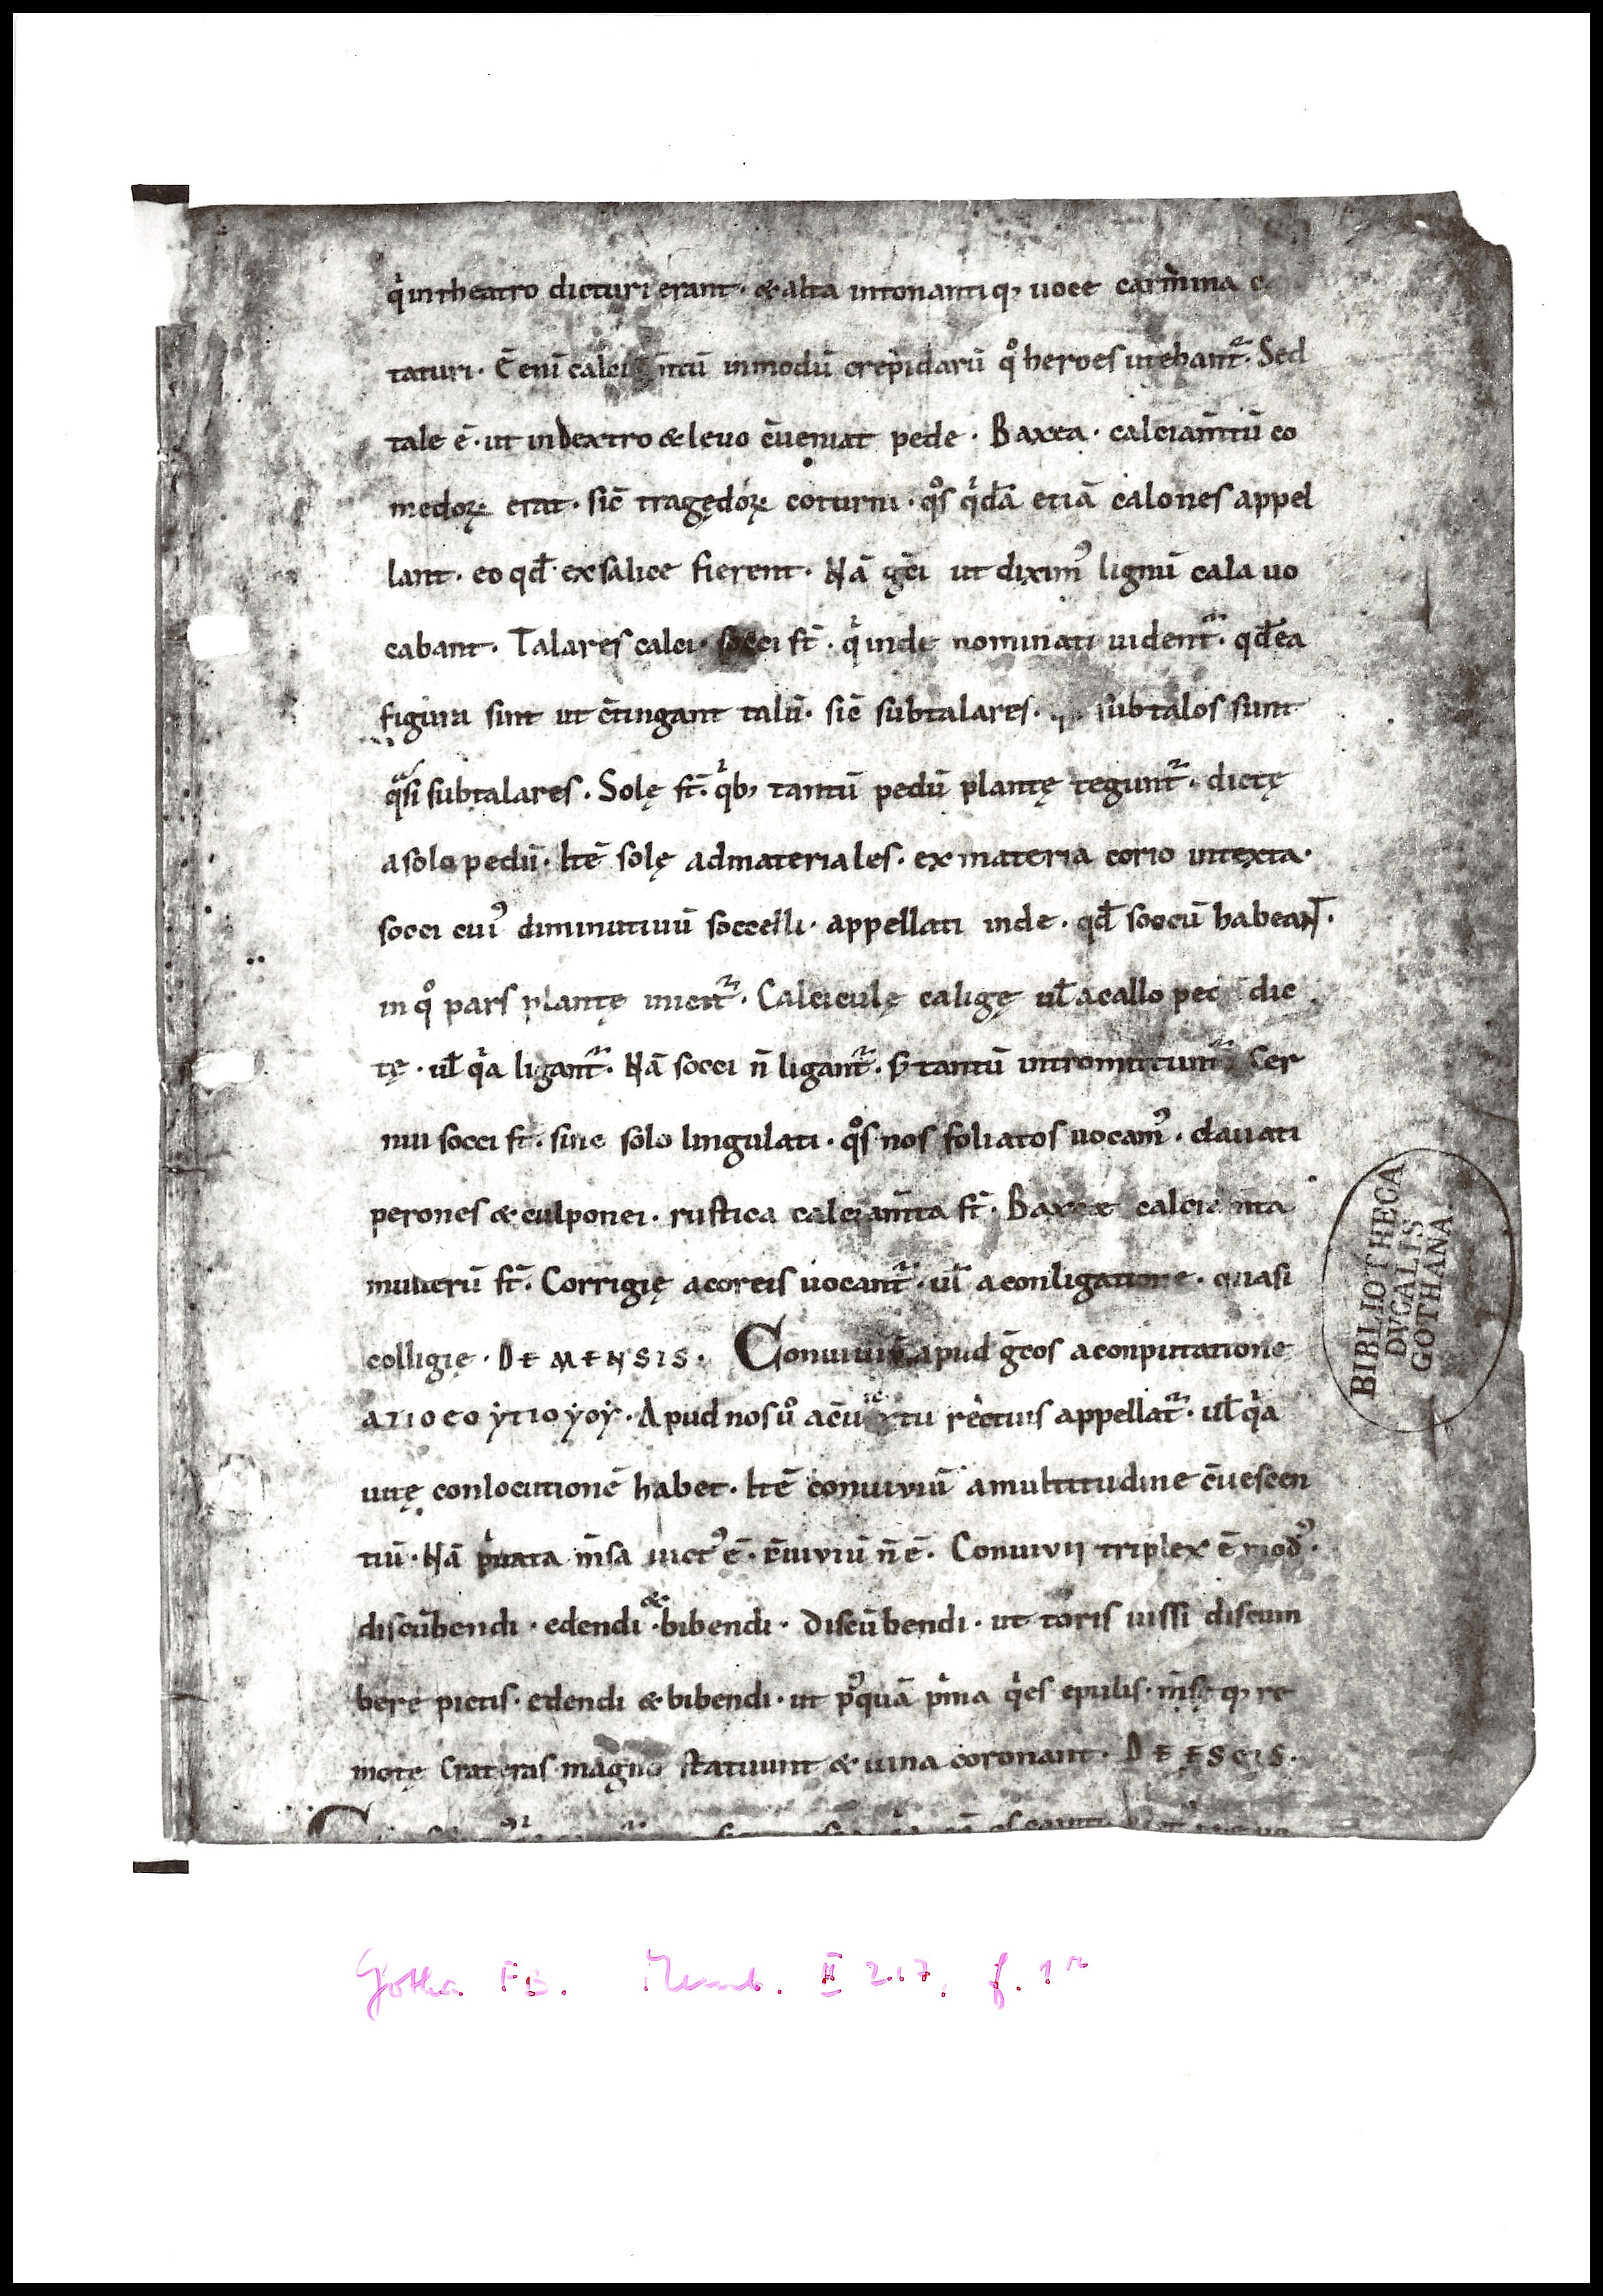 qͥ in theatro dicturi erant · & alta intonantiq; uoce carmina
taturi · ē enī in modū crepidarū qͦ heroes utebant᷑ · Sed
tale ē · ut in dextro & leuo c̄ueniat pede · Baxea · calciam̄tū co
medoꝝ erat · sic̄ tragędoꝝ coturni · qͦs qͥdā etiā calones appel
lant · eo qd̄ ex salice fierent · Nā gc̄i ut diximꝰ lignū cala uo
cabant · Talares calci · socci st̄ · qͥ inde nominati uident᷑ · qd̄ ea
figura sint ut c̄tingant talū · sic̄ subtalares · sub talos sunt
qͣsi subtalares · Solę st̄ · qͥb; tantū pedū plantę tegunt᷑ · dictę
a solo pedū · Itē solę ad materiales · ex materia corio intexta ·
socci cuiꝰ diminutiuū soccelli · appellati inde · qd̄ soccū habeant ·
in qͦ pars plantę inicit᷑ · Calciculę caligę ul̄ a callo dic
tę · ul̄ qͥa ligant᷑ · Nā socci n̄ ligant᷑ · s; tantū intromittunt᷑ · Cer
nui socci st̄ · sine solo lingulati · qͦs nos foliatos uocamꝰ · clauati
perones & culponei · rustica calciam̄ta st̄ · Baxeae
mulierū st̄ · Corrigię a coreis uocant᷑ · ul̄ a conligatione · quasi
colligię · DE MENSIS · Conuiuiū apud gc̄os a conpuitatione
ΑΠΟ CΟΥΤΙΟΥΟΥ · Apud nos uͦ a c̄uictu rectius appellat᷑ · ul̄ qͥa
uitę conlocutionē habet · Itē conuiuiū a multitudine c̄uescen
tiū · Nā pͥuata m̄sa uictꝰ ē · c̄uiuiū n̄ ē · Conuiuii triplex ē modꝰ ·
discūbendi · edendi · & bibendi · Discūbendi · ut toris iussi discum
bere pictis · edendi & bibendi · ut pꝰquā pͥma qͥes epulis · m̄sęq; re
motę Crateras magnos statuunt & uina coronant · DE ESCIS ·
BIBLIOTHECA
DVCALIS
GOTHANA
Gotha FB. Memb. II 217, f. 1r